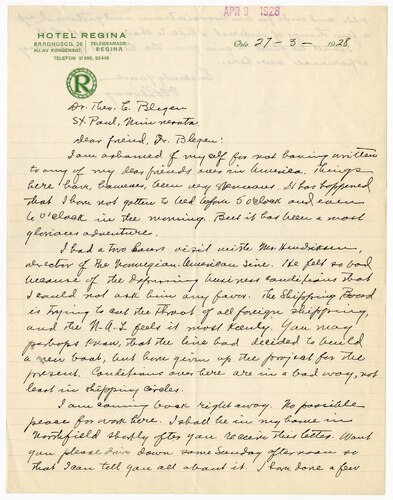 APR 9 1928
HOTEL REGINA
RAADHUSGD. 26
HJ. AV KONGENSGT.
TELEGRAMADR.:
REGINA
TELEFON 21 996, 23 446
R
Oslo 27-3-1928
Dr. Theo. C. Blegen
St Paul, Minnesota
Dear friend, Dr. Blegen:
I am ashamed of myself for not having written
to any of my dear friends over in America. Things
here have, however, been very strenuous. It has happened
that I have not gotten to bed before 5 o'clock and even
6 o'clock in the morning. But it has been a most
glorious adventure.
I had a two hours visit with Mr. Hendriksen,
director of the Norwegian-American Line. He felt so bad
because of the depressing business conditions that
I could not ask him any favor. The Shipping Board
is trying to cut the throat of all foreign shipping,
and the N.A.L. feels it most keenly. You may
perhaps know, that the line had decided to build
a new boat, but have given up the project for the
present. Conditions over here are in a bad way, not
least in shipping circles.
I am coming back right away. No possible
peace for work here. I shall be in my home in
Northfield shortly after you receive this letter. Want
you please drive down some Sunday afternoon so
that I can tell you all about it. I have done a few